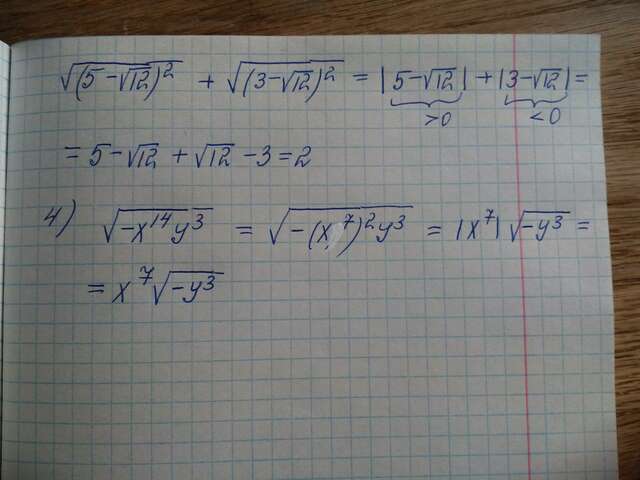 √(5-√12)² + √(3-√12)² = |5-√12| + |3-√12| =
>0 <0
= 5-√12 + √12 -3=2
4) √-x¹⁴y³ = √-(x⁷)²y³ = |x⁷| √-y³ =
= x⁷√-y³